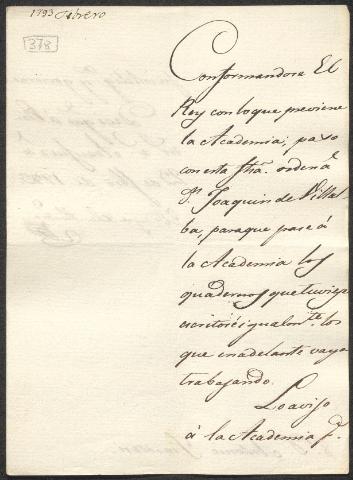 1793 Febrero
378
Conformandose El
Rey con lo que previene
la Academia; paso
con esta fha. orden á
Dn. Joaquin de Villal-
ba, para que pase á
la Academia los
quadernos que tuviese
escritos é igualmte. los
que en adelante vaya
trabajando.
Lo aviso
á la Academia pa.